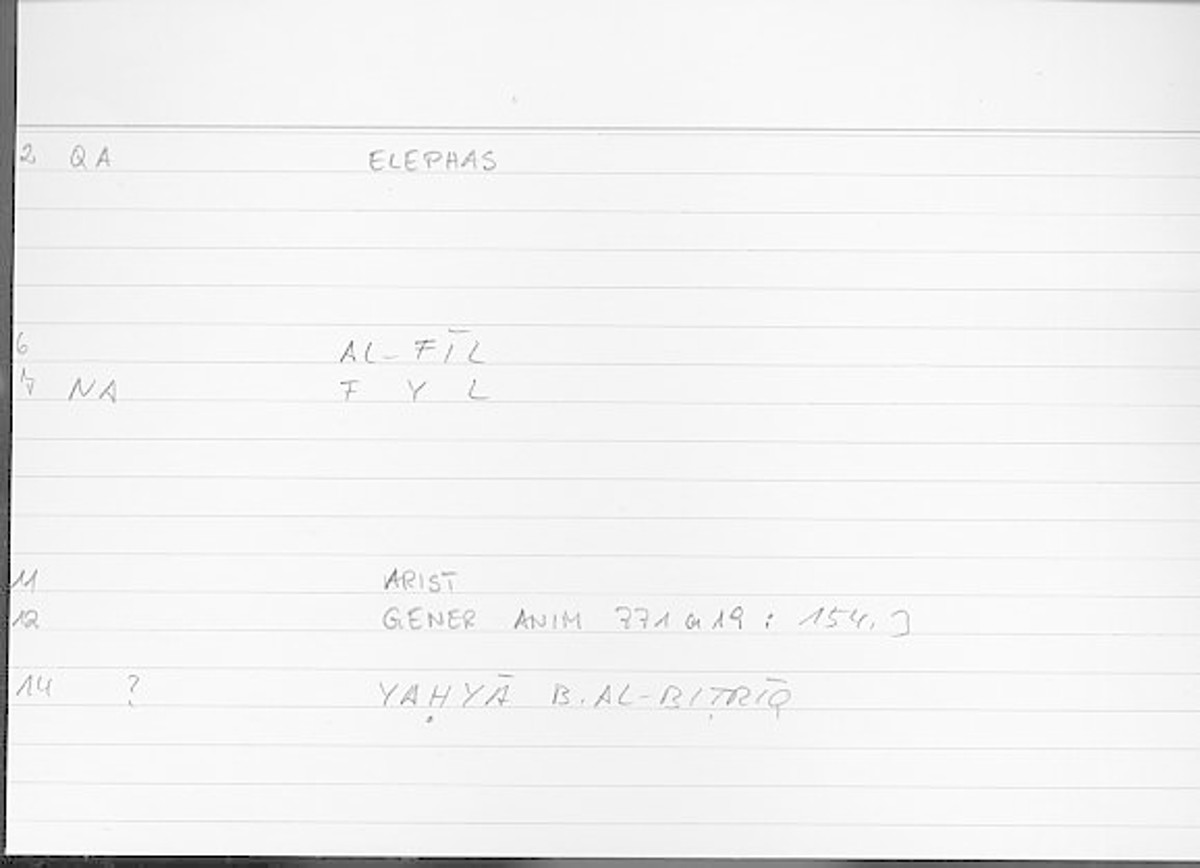 2 QA ELEPHAS
6 AL-FĪL
7 NA F Y L
11 ARIST
12 GENER ANIM 771 a 19 : 154,3
14 ? YAḤYĀ B. AL-BIṬRĪQ